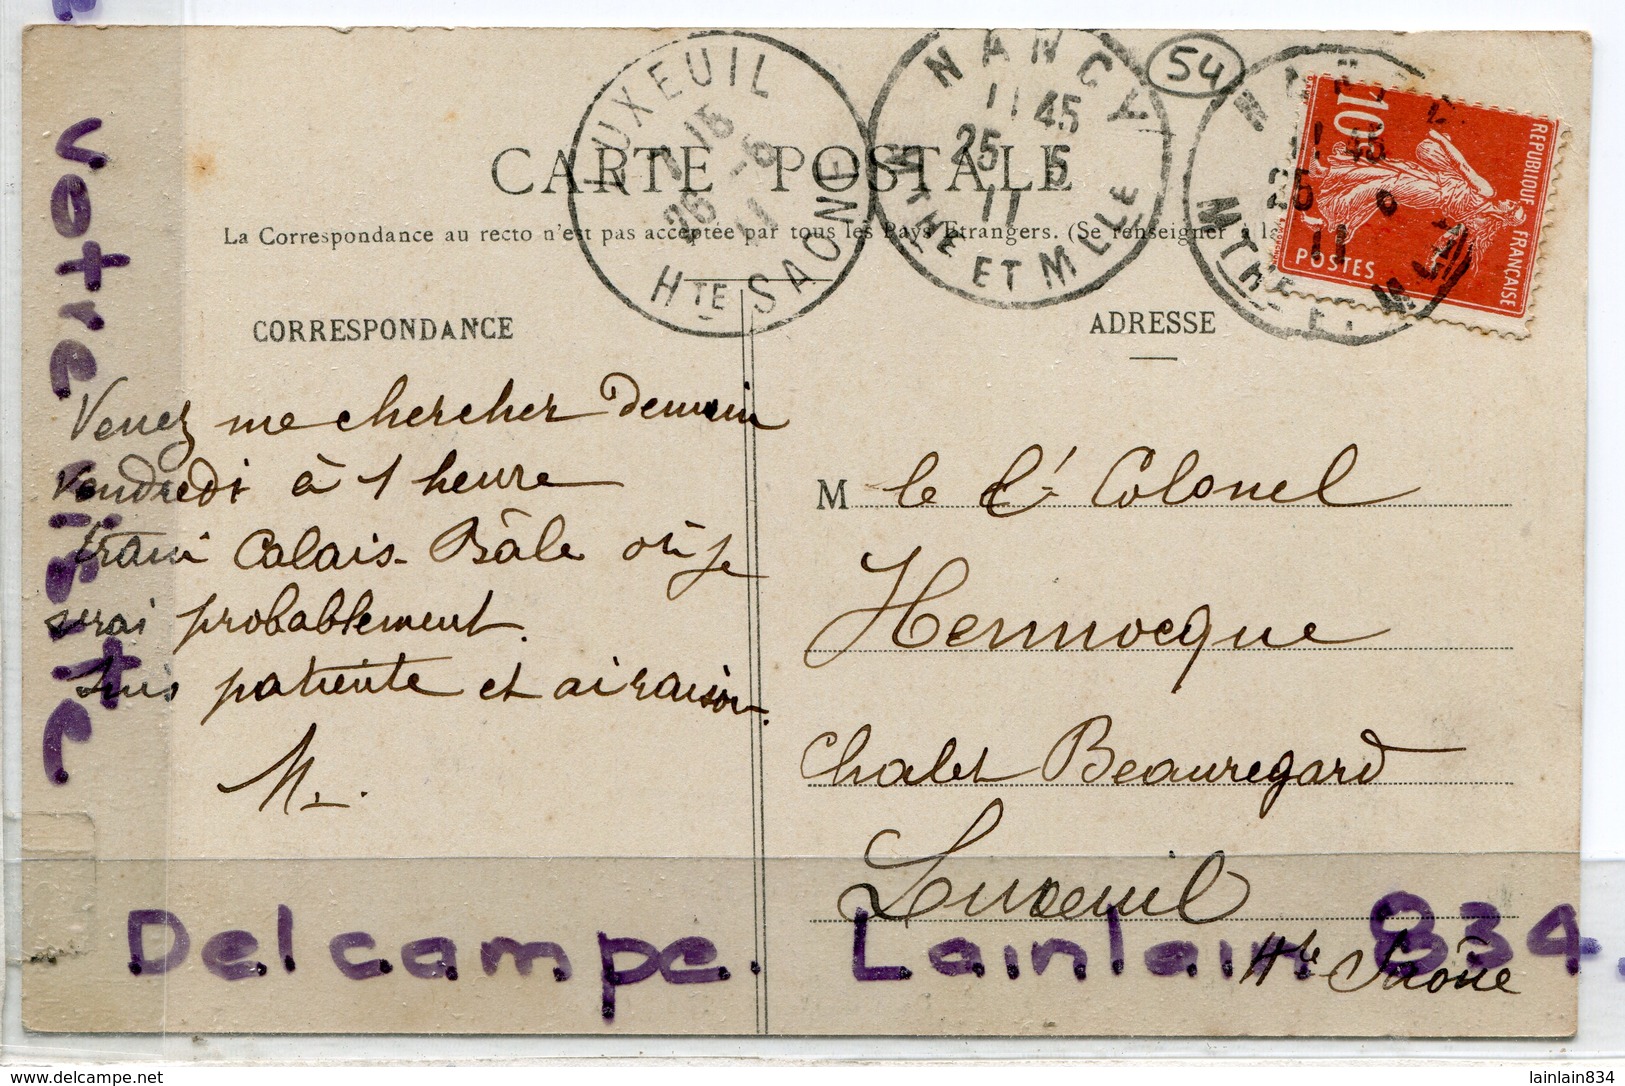 LUXEUIL
7 15
26 -5
11
Hte SAONE
NANCY
11 45
25 5
11
MTHE ET MLLE
54
11 45
25
11
MTHE
REPUBLIQUE FRANÇAISE
10c
POSTES
CARTE POSTALE
La Correspondance au recto n'est pas acceptée par tous les Pays Étrangers. (Se renseigner à la
CORRESPONDANCE
ADRESSE
Venez me chercher Demain
vendredi à 1 heure
train Calais-Bâle où je
serai probablement.
Suis patiente et ai raison.
M.
M le Lt Colonel
Hennocque
Chalet Beauregard
Luxeuil
Hte Saône
Votre visite
Delcampe. Lainlain 834.
www.delcampe.net
lainlain834